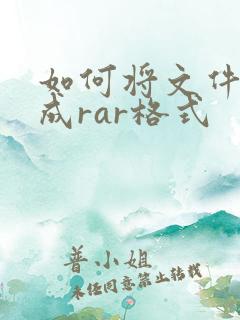 如何将文件
成rar格式
普小姐
未经同意禁止转载